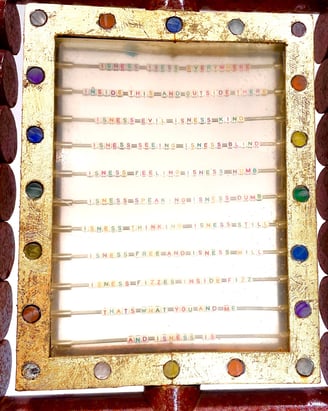 ISNESS ISESS EVERYWHERE
INSIDE THIS AND OUTSIDE THERE
ISNESS EVIL ISNESS KIND
ISNESS SEEING ISNESS BLIND
ISNESS FEELING ISNESS NUMB
ISNESS SPEAKING ISNESS DUMB
ISNESS THINKING ISNESS STILL
ISNESS FREE AND ISNESS WILL
ISNESS FIZZES INSIDE FIZZ
THATS WHAT YOU AND ME
AND ISNESS IS